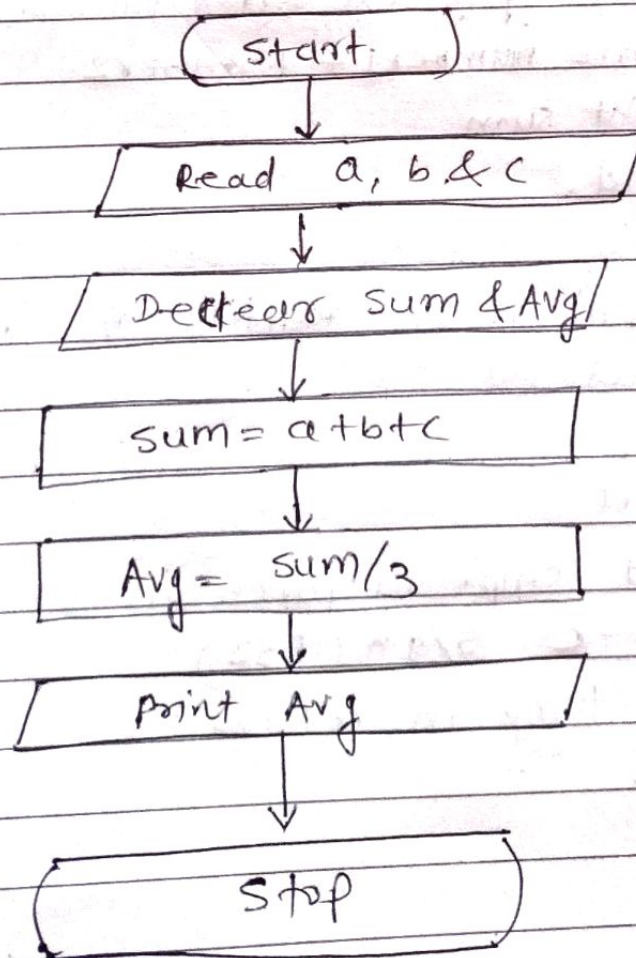 Start.
Read a, b & c
Decleear Sum & Avg
Sum = a+b+c
Avg = Sum/3
Print Avg
Stop